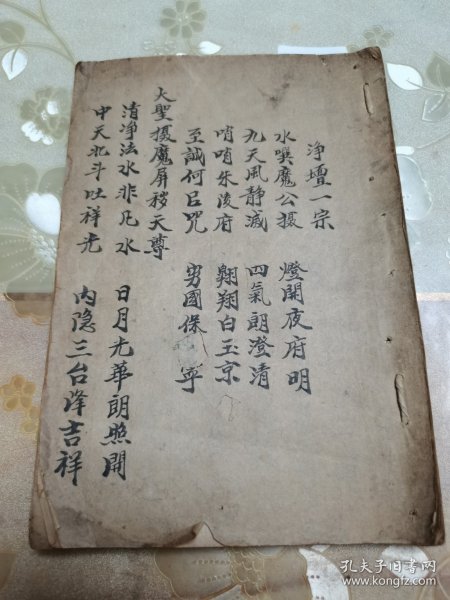 净壇一宗
水噀魔公摄 燈開夜府明
九天風静滅 四氣朗澄清
哨哨朱陵府 翱翔白玉京
至誠何巨咒 穷國保 寧
大聖摄魔屏秽天尊
清净法水非凡水 日月光華朗照開
中天北斗吐祥光 内隐三台降吉祥
孔夫子旧书网
www.kongfz.com